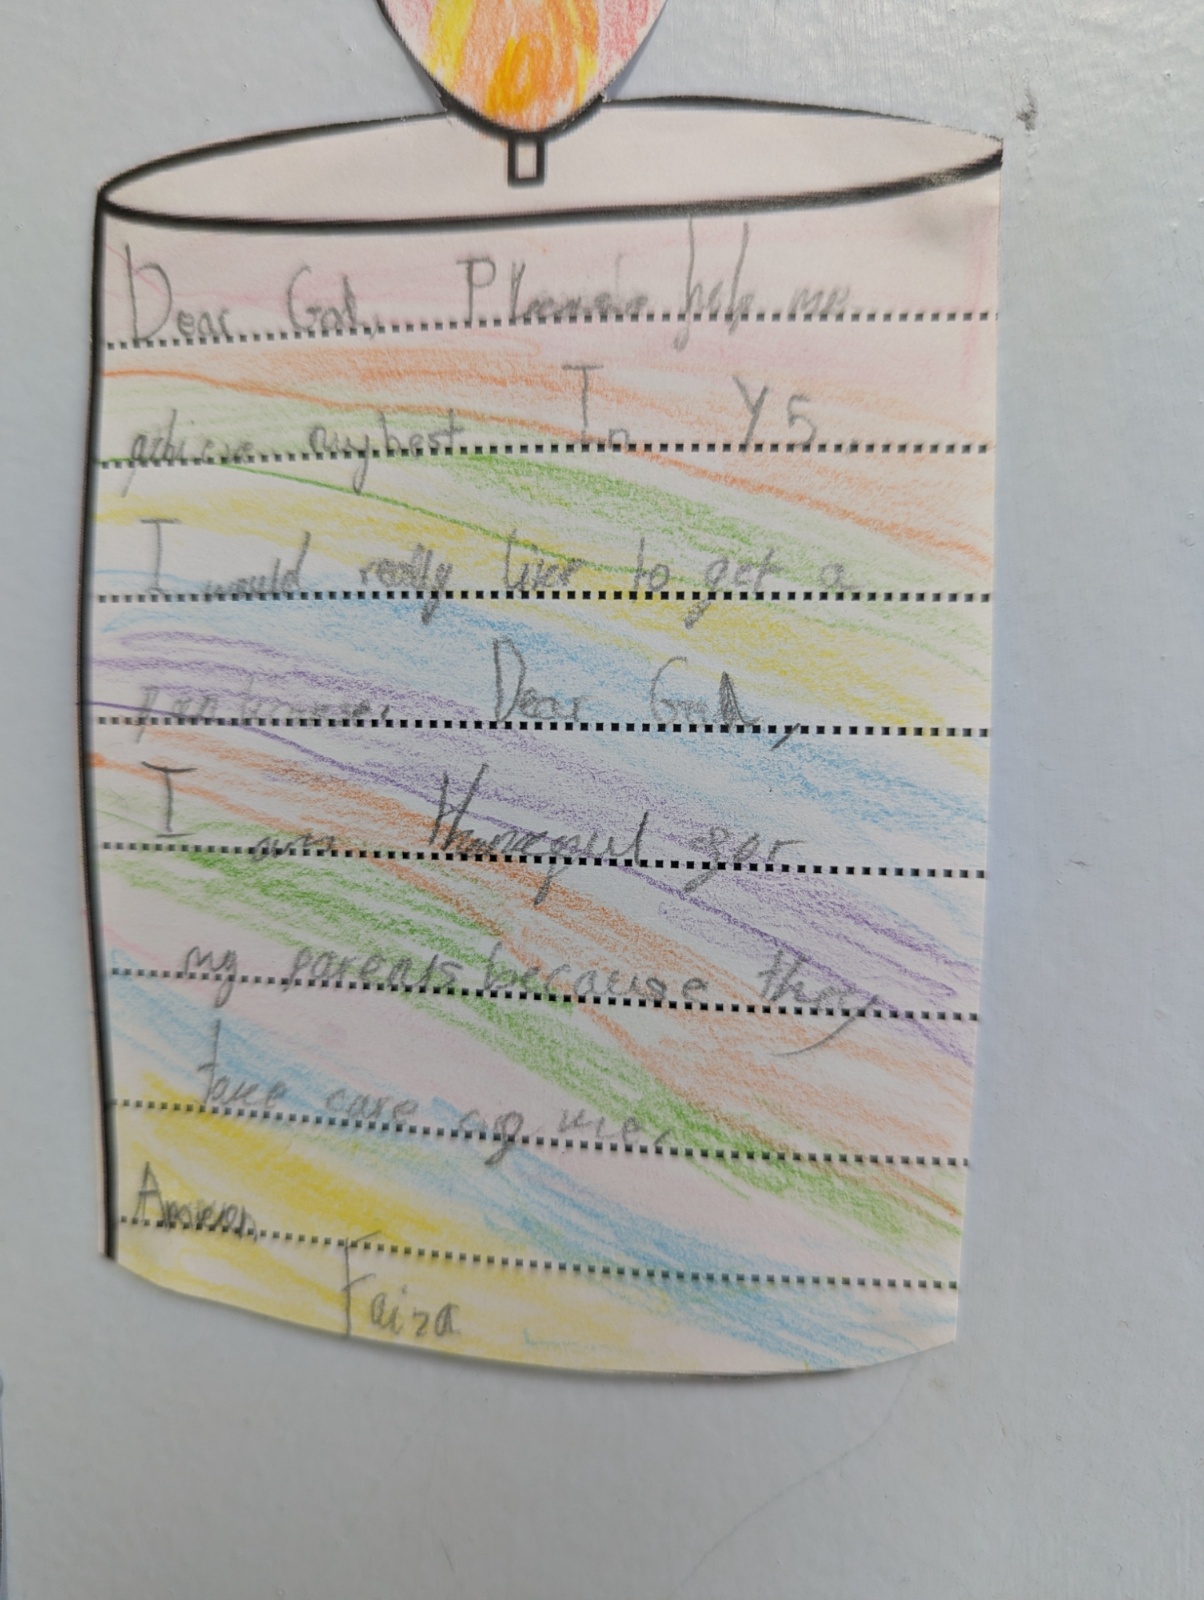 Dear God, Please help me
achieve my best In Y5.
I would really like to get a
pen license. Dear God,
I am thankful for
my parents because they
take care of me.
Amen
Faiza